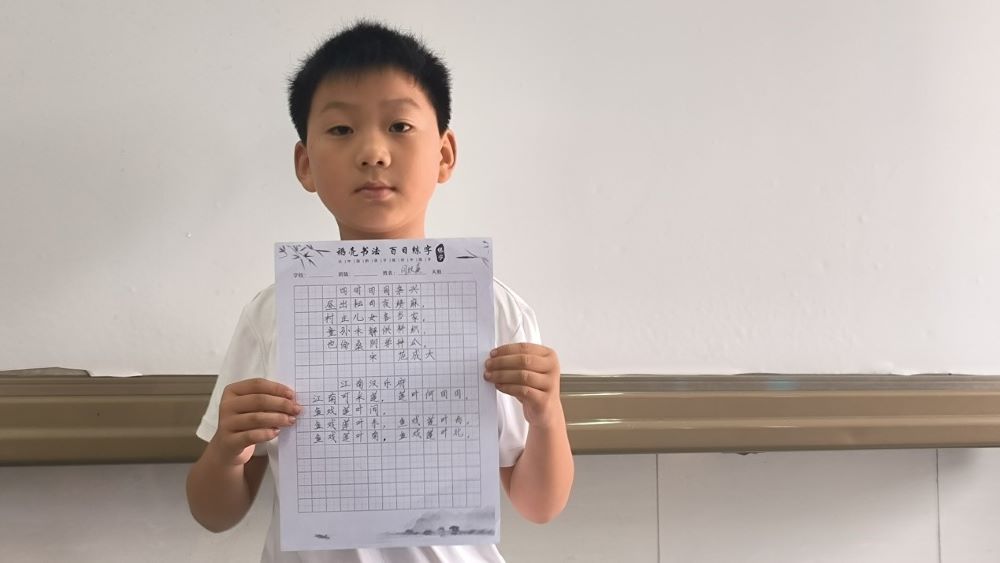 语亮书法 百日练字
练字
学校: 班级: 姓名: 天数:
四时田园杂兴
昼出耘田夜绩麻,
村庄儿女各当家。
童孙未解供耕织,
也傍桑阴学种瓜。
宋 范成大
江南汉乐府
江南可采莲,莲叶何田田,
鱼戏莲叶间,
鱼戏莲叶东,鱼戏莲叶西,
鱼戏莲叶南,鱼戏莲叶北。